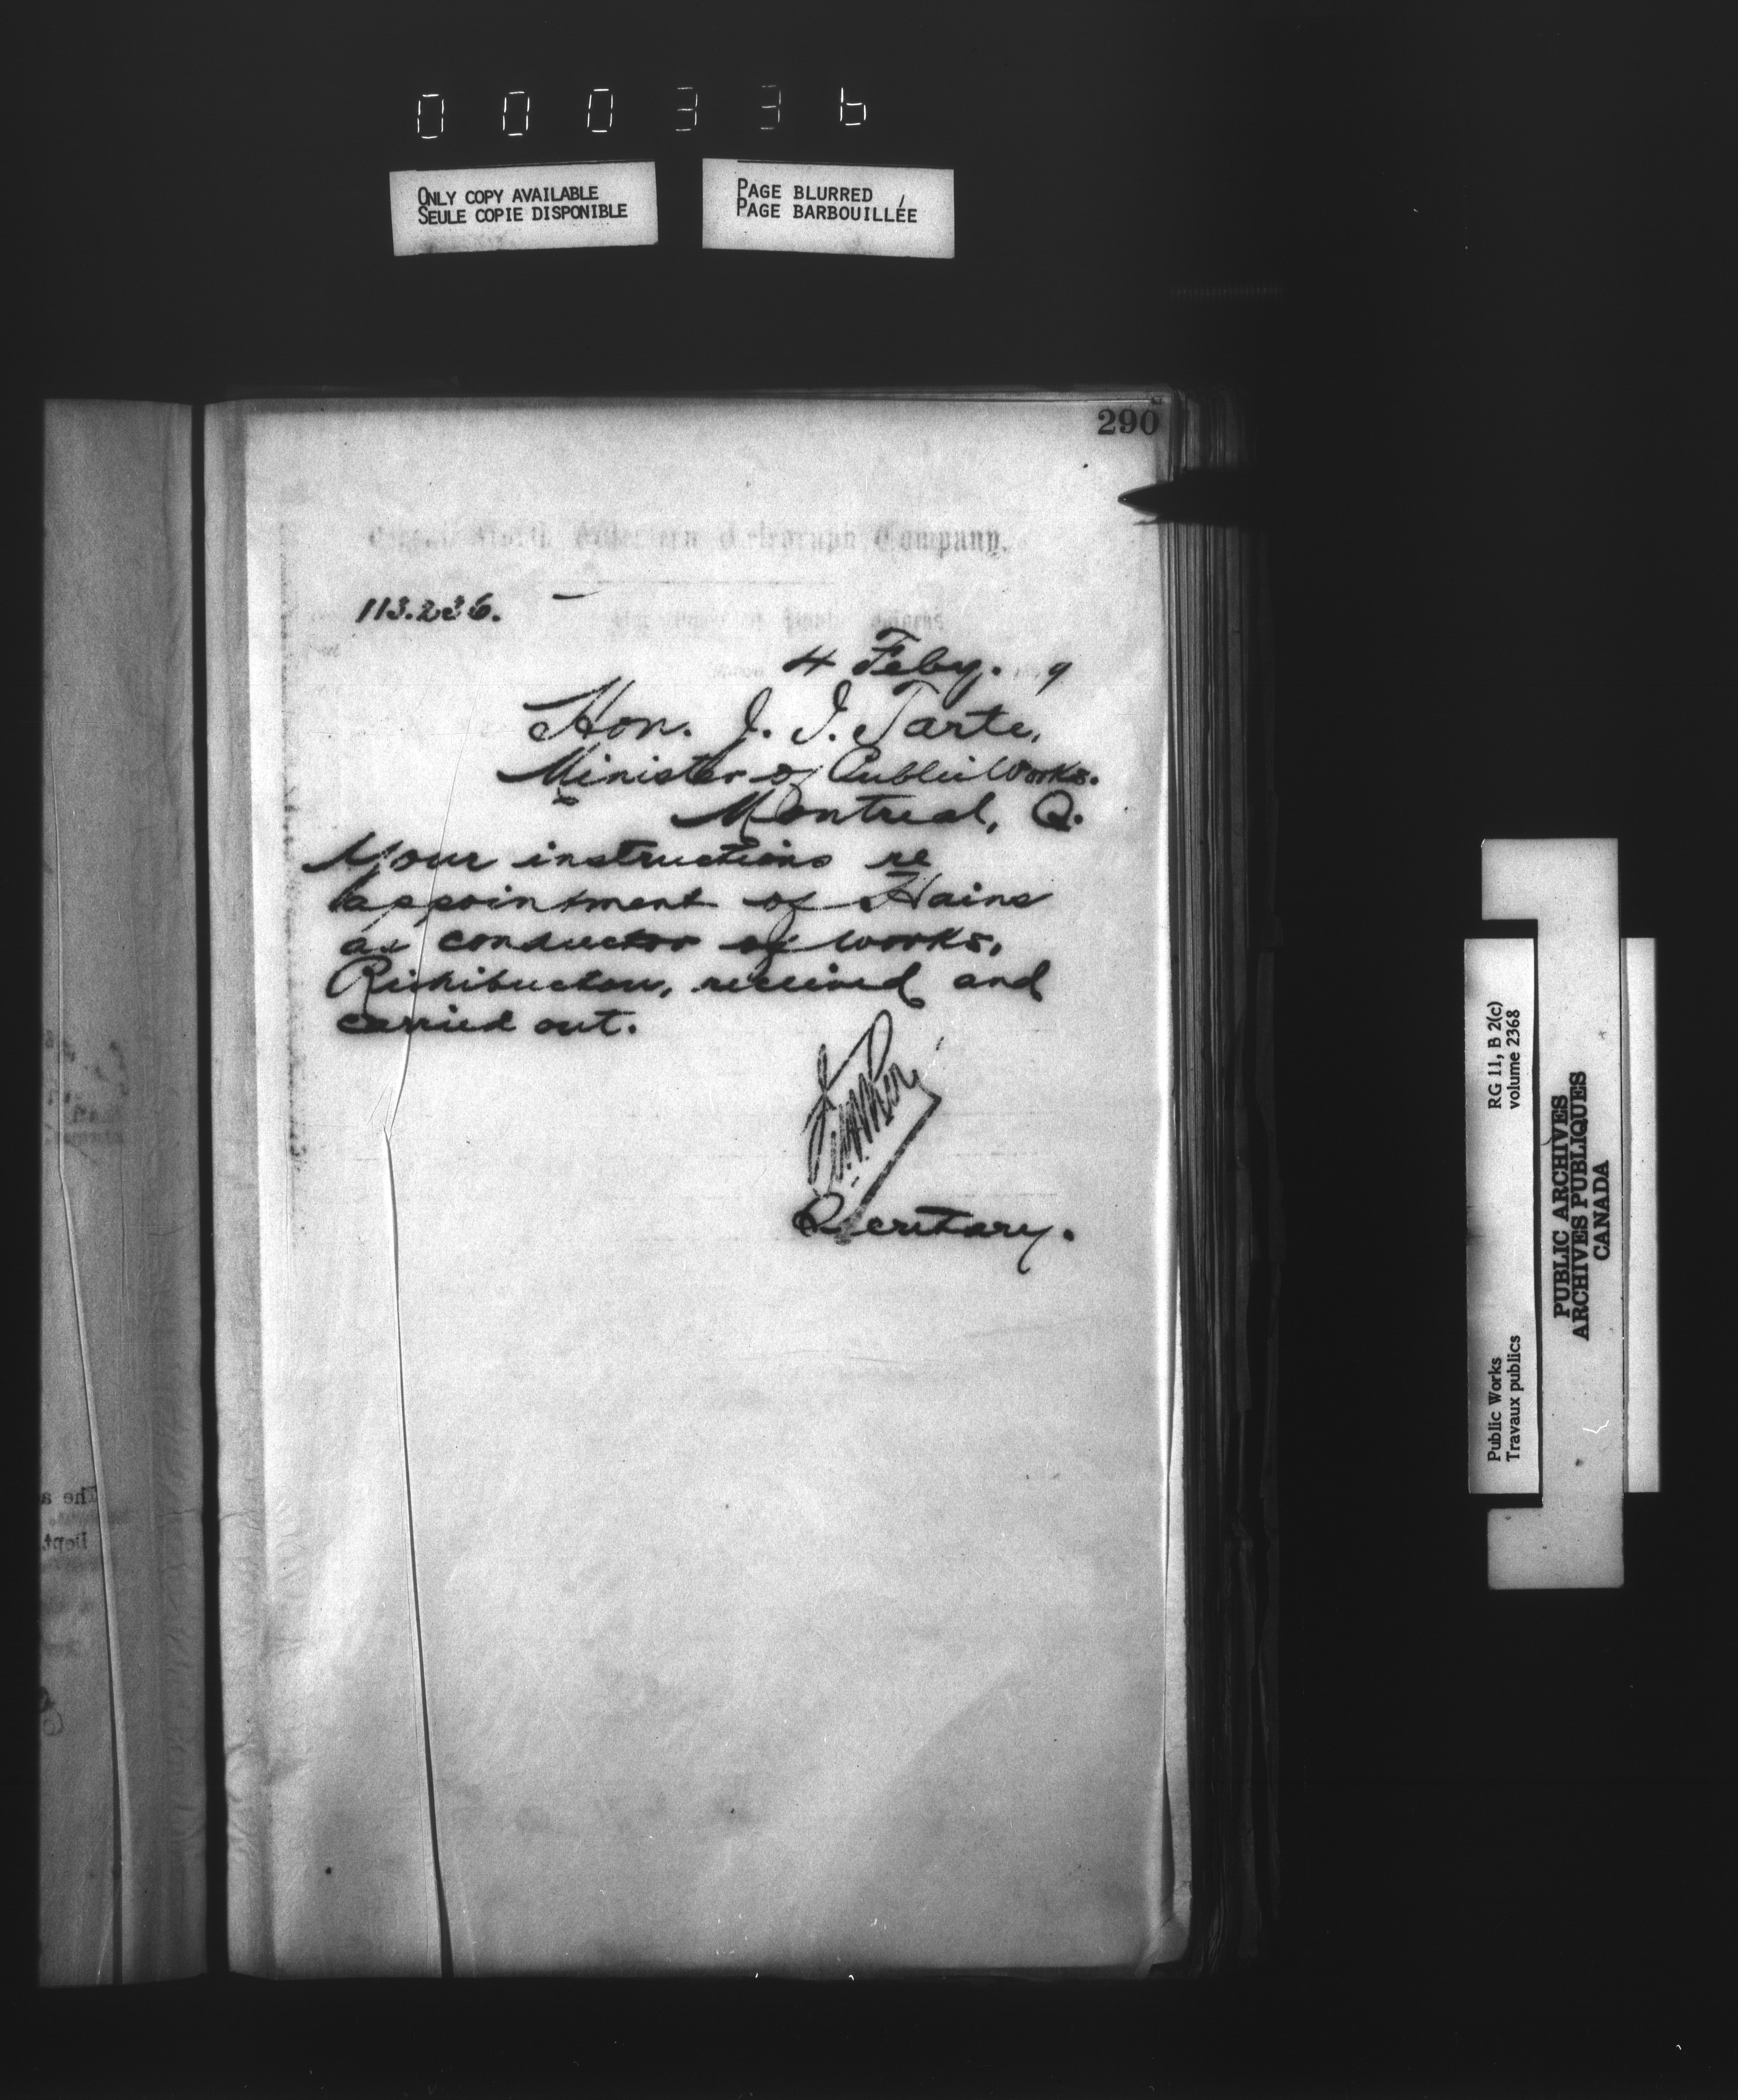 000336
ONLY COPY AVAILABLE
SEULE COPIE DISPONIBLE
PAGE BLURRED
PAGE BARBOUILLÉE
290
Great North Western Telegraph Company.
113.236.
4 Feby. 9
Hon. J. I. Tarte,
Minister of Public Works.
Montreal, Q.
Your instructions re
appointment of Hains
as conductor of works,
Richibuctou, received and
carried out.
Secretary.
The a
Dept.
RG 11, B 2(c)
volume 2368
Public Works
Travaux publics
PUBLIC ARCHIVES
ARCHIVES PUBLIQUES
CANADA